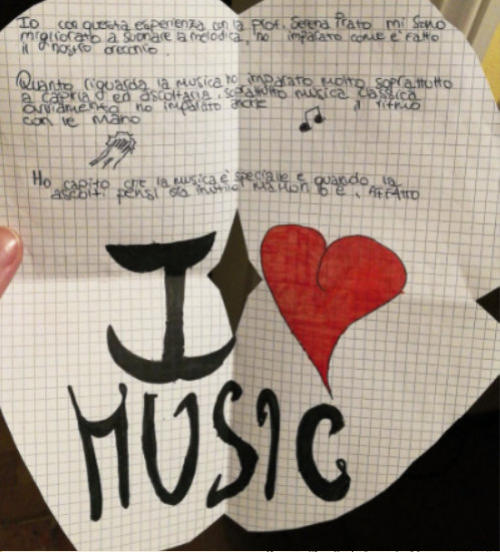 Io con questa esperienza con la Prof. Serena Prato mi sono
migliorato a suonare la melodica, ho imparato come è fatto
il nostro orecchio.
Quanto riguarda la musica ho imparato molto soprattutto
a capirla ed ascoltarla, soprattutto musica classica
ovviamente ho imparato anche il ritmo
con le mano
Ho capito che la musica è speciale e quando la
ascolti pensi sia inutile ma non lo è, affatto
I
MUSIC